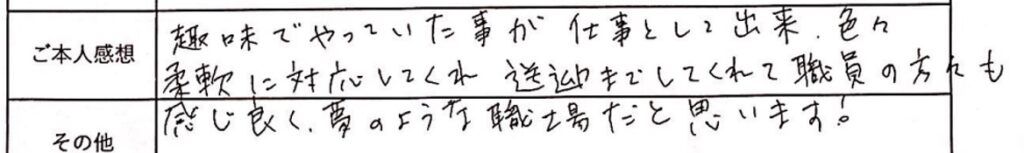 ご本人感想
趣味でやっていた事が仕事として出来、色々
柔軟に対応してくれ 送迎までしてくれて職員の方々も
感じ良く、夢のような職場だと思います!
その他